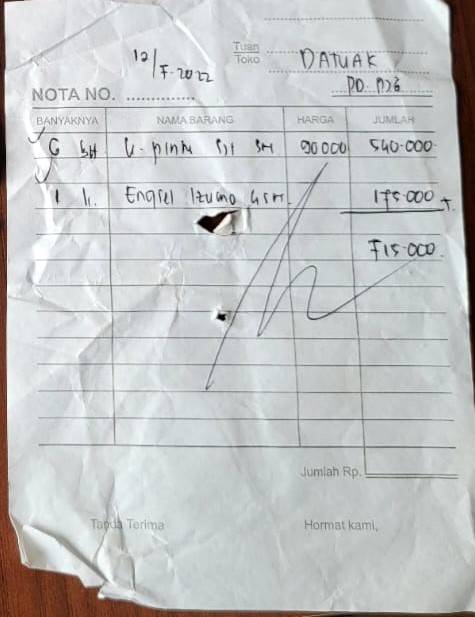 12/7-2022
Tuan
Toko DATUAK
NOTA NO. ..............
BANYAKNYA NAMA BARANG HARGA JUMLAH
6 BH 90000 540.000.
1 Engsel Izumo 175.000 +
715.000.
Jumlah Rp.
Tanda Terima Hormat kami,